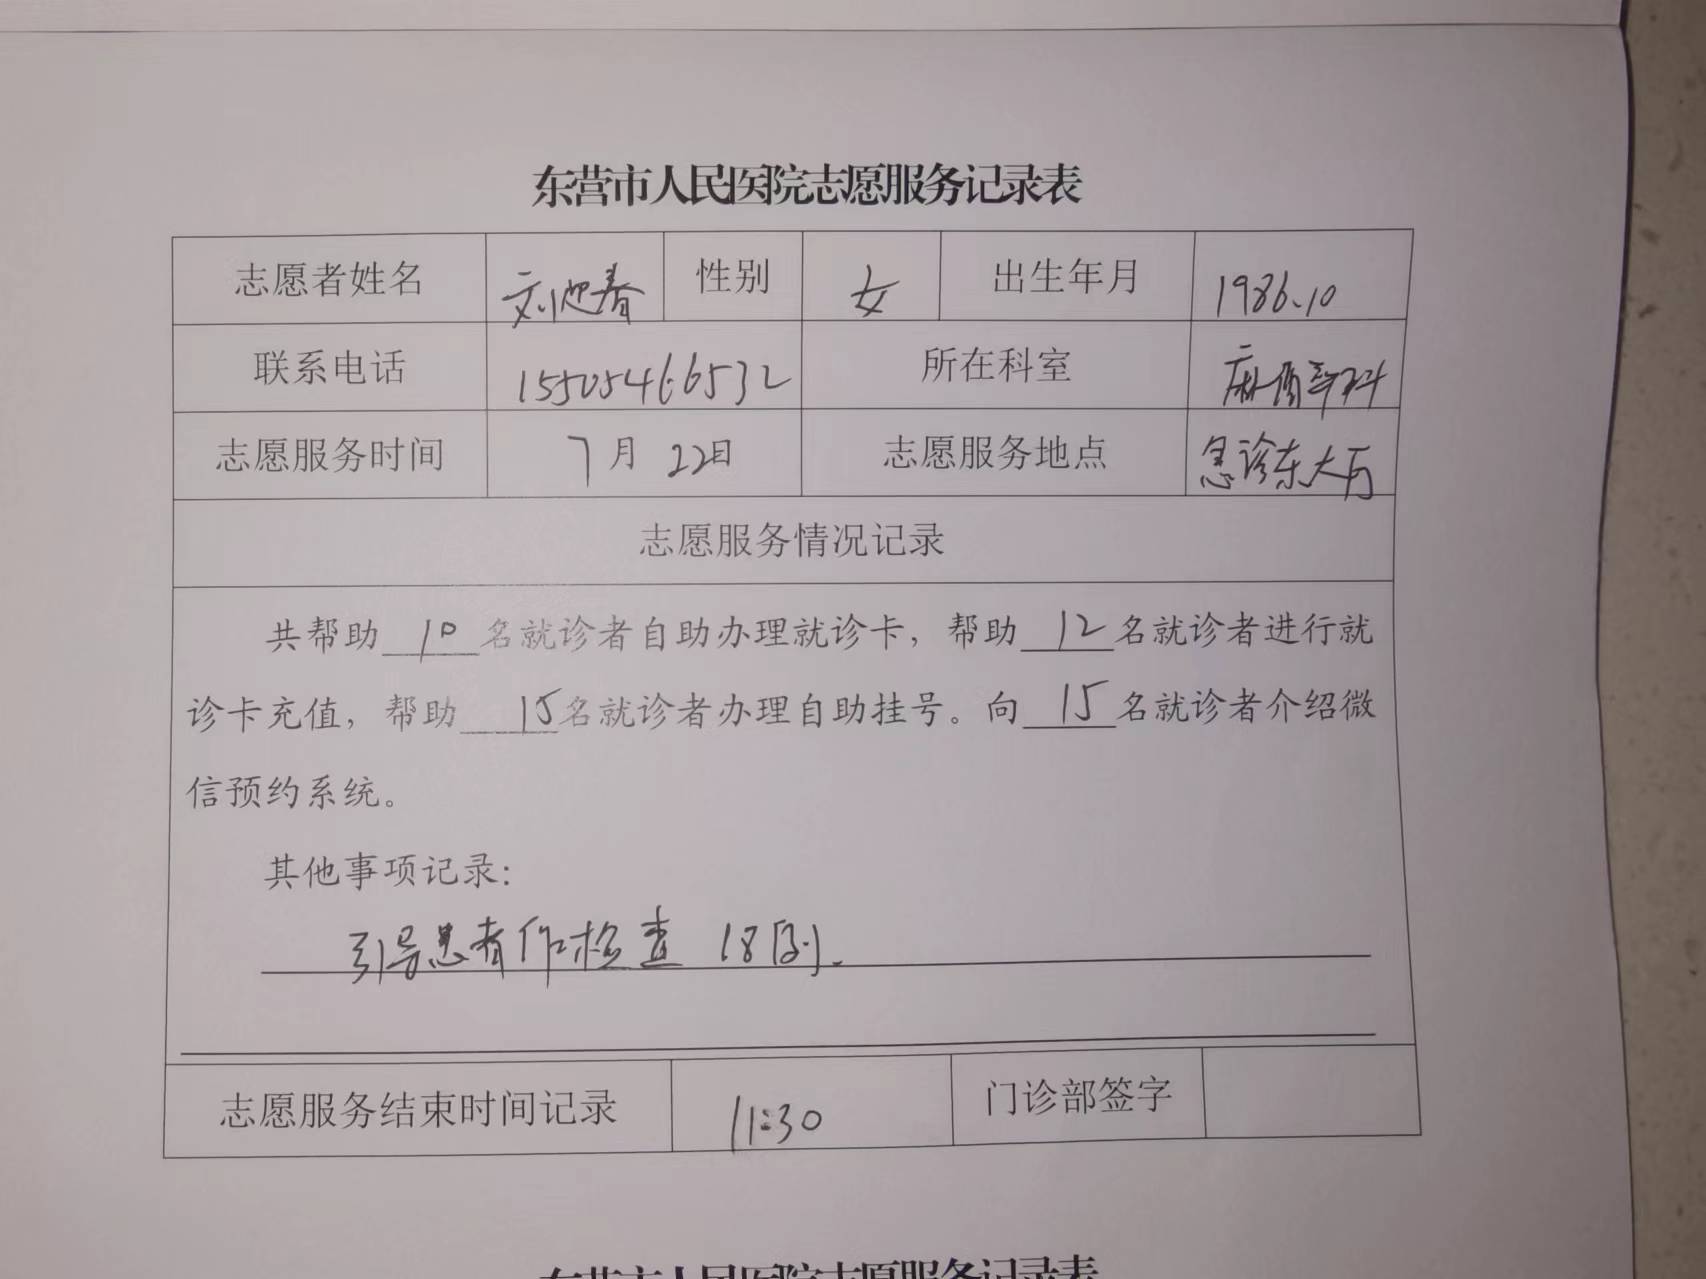 东营市人民医院志愿服务记录表
志愿者姓名 刘迎春 性别 女 出生年月 1986.10
联系电话 15505466532 所在科室 麻醉科
志愿服务时间 7月22日 志愿服务地点 急诊东大厅
志愿服务情况记录
共帮助 10 名就诊者自助办理就诊卡，帮助 12 名就诊者进行就
诊卡充值，帮助 15 名就诊者办理自助挂号。向 15 名就诊者介绍微
信预约系统。
其他事项记录：
引导患者作检查 18例.
志愿服务结束时间记录 11:30 门诊部签字
东营市人民医院志愿服务记录表